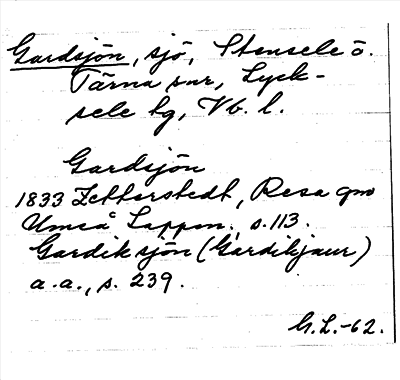 Gardsjön, sjö, Stensele o.
Tärna snr, Lyck-
sele lg, Vb. l.
Gardsjön
1833 Zetterstedt, Resa gm
Umeå Lappm. s. 113.
Gardiksjön (Gardikjaur)
a.a., s. 239.
G.L.-62.